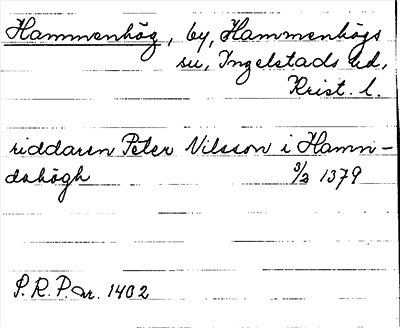 Hammenhög, by, Hammenhögs
su, Ingelstads hd,
Krist. l.
riddaren Peter Nilsson i Hamn-
dahögh 3/3 1379
S.R.P. nr. 1402